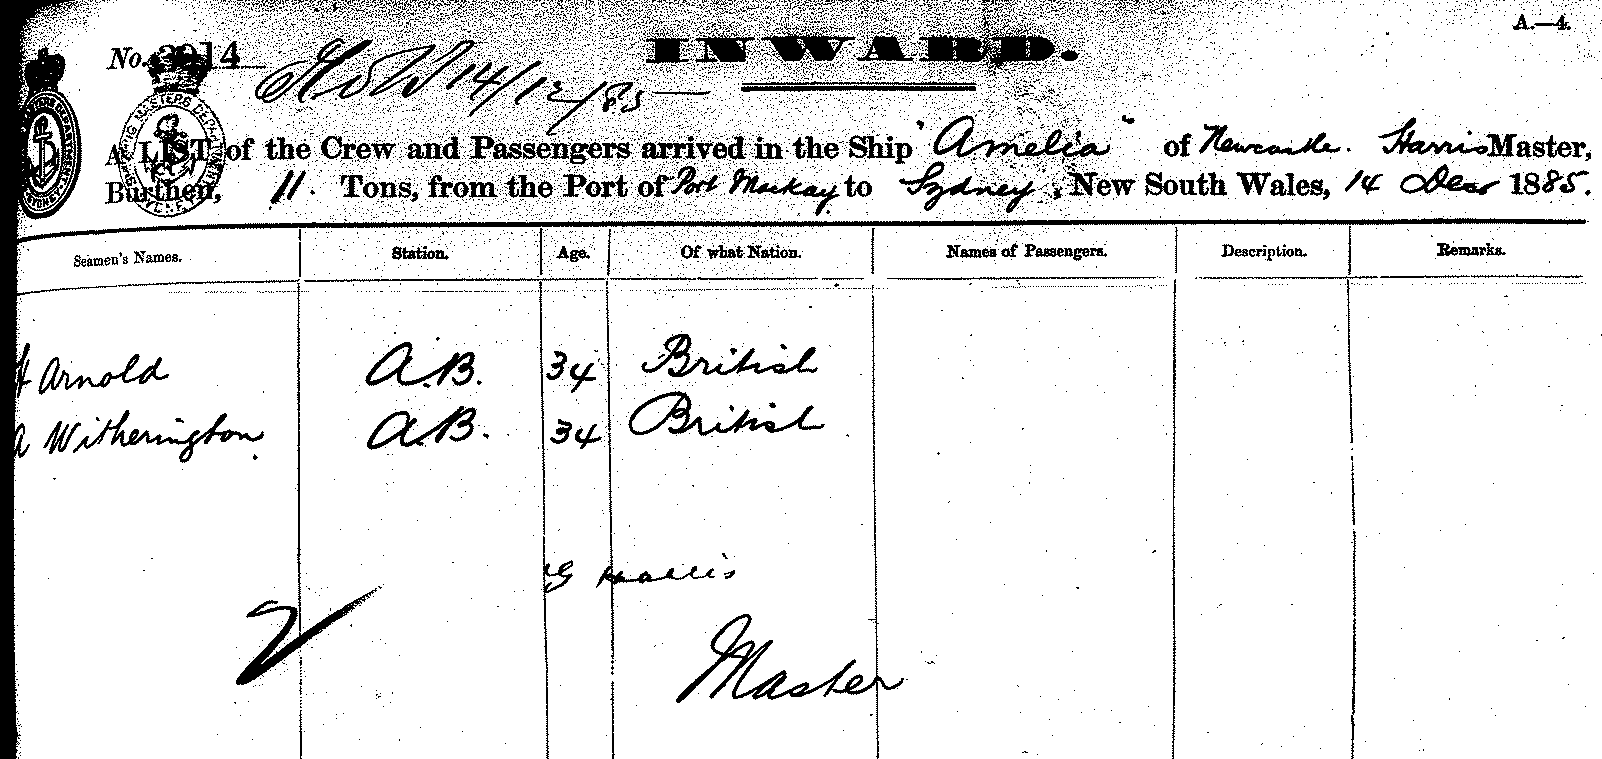 A.—4.
INWARD.
No. 14
14/12/85
A LIST of the Crew and Passengers arrived in the Ship "Amelia" of Newcastle. Harris Master,
Burthen, 11. Tons, from the Port of Port Mackay to Sydney, New South Wales, 14 Decr 1885.
Seamen's Names. Station. Age. Of what Nation. Names of Passengers. Description. Remarks.
H Arnold A.B. 34 British
A Witherington A.B. 34 British
G Hallis
Master